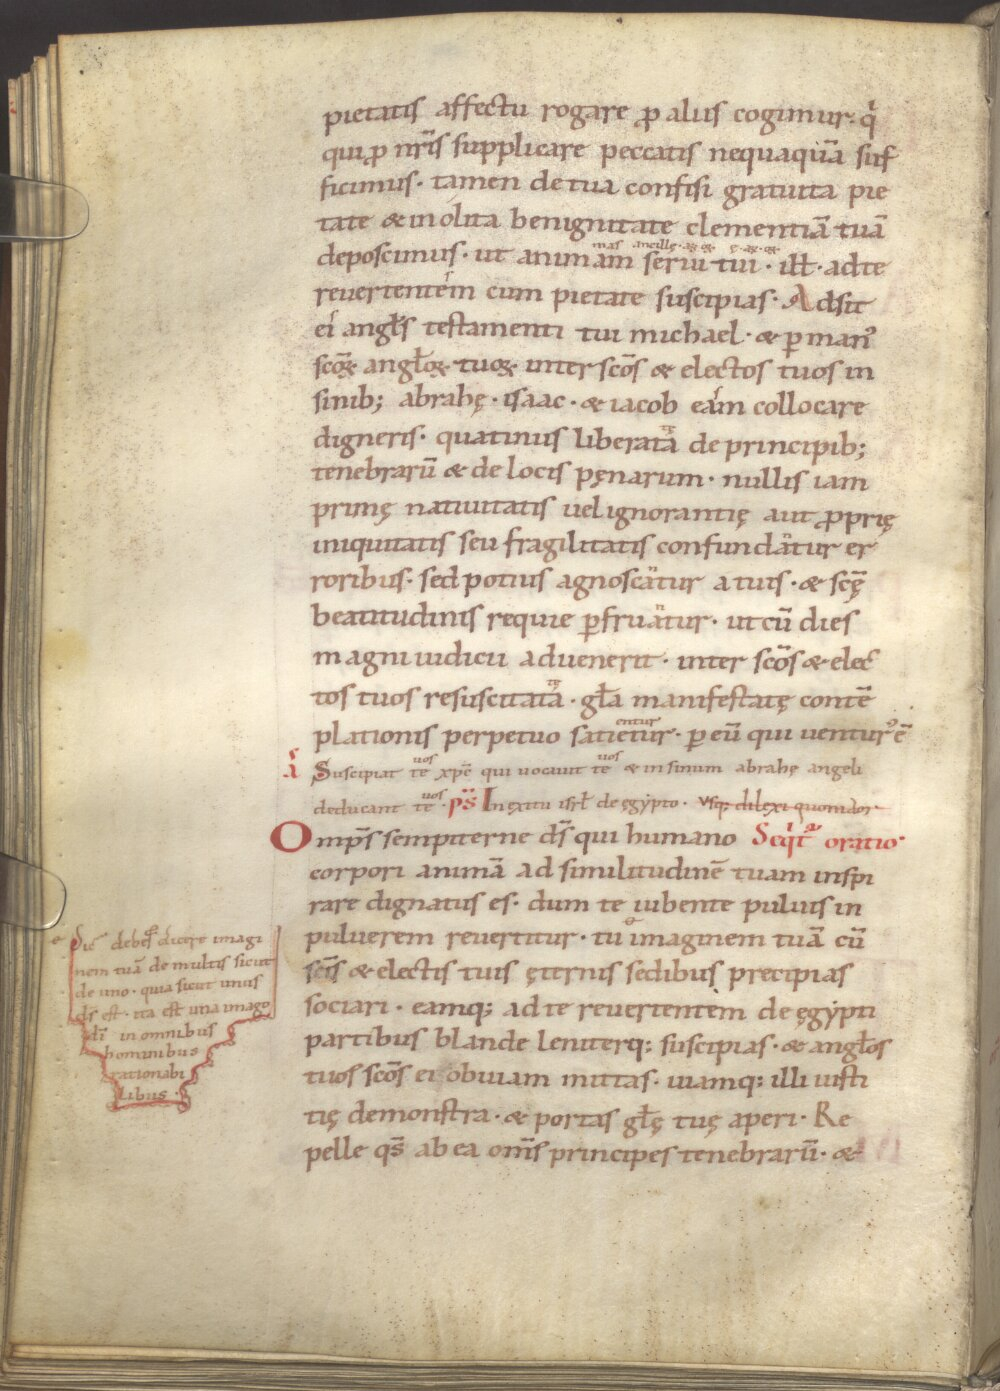 pietatis affectu rogare ꝓ aliis cogimur· q̇
qui ꝓ nr̄is supplicare peccatis nequaquā suf
ficimus· tamen de tua confisi gratuita pie
tate & inolita benignitate clementiā tuā
mas ancillę·
deposcimus· ut animam serui tui· ill̄· ad te
reuertentem cum pietate suscipias· Adsit
ei angl̄s testamenti tui michael· & ꝑ man᾽
scōꝝ angl̄oꝝ tuoꝝ inter scōs & electos tuos in
sinib; abrahę· isaac· & iacob eam collocare
digneris· quatinus liberata de principib;
tenebrarū & de locis pęnarum· nullis iam
primę natiuitatis uel ignorantię aut ꝓprię
iniquitatis seu fragilitatis confundatur er
roribus· sed potius agnoscatur a tuis· & scę̄
beatitudinis requie ꝑfruatur· ut cū dies
magni iudicii aduenerit· inter scōs & elec
tę
tos tuos resuscitata· gl̄a manifestatę contē
entur
plationis perpetuo satietur· ꝑ eū qui uentur᾽ ē
uos uos
A Suscipiat te xp̄ē qui uocauit te & in sinum abrahę angeli
uos
deducant te· ps̄ In exitu isr̄l de ęgypto· Vsq; dilexi quoniđ
Omp̄s sempiterne ds̄ qui humano Seqt̄ oratio·
corpori animā ad similitudinē tuam inspi
rare dignatus es· dum te iubente puluis in
puluerem reuertitur· tu imaginem tuā cū
scīs & electis tuis ęternis sedibus precipias
sociari· eamq; ad te reuertentem de ęgypti
partibus blande leniterq; suscipias· & angl̄os
tuos scōs ei obuiam mittas· uiamq; illi iusti
tię demonstra· & portas gl̄ę tuę aperi· Re
pelle qs̄ ab ea om̄s principes tenebrarū· &
Sic debes dicere imagi
nem tuā de multis sicut
de uno· quia sicut unus
ds̄ est· ita est una imago
dī in omnibus
hominibus
rationabi
libus·